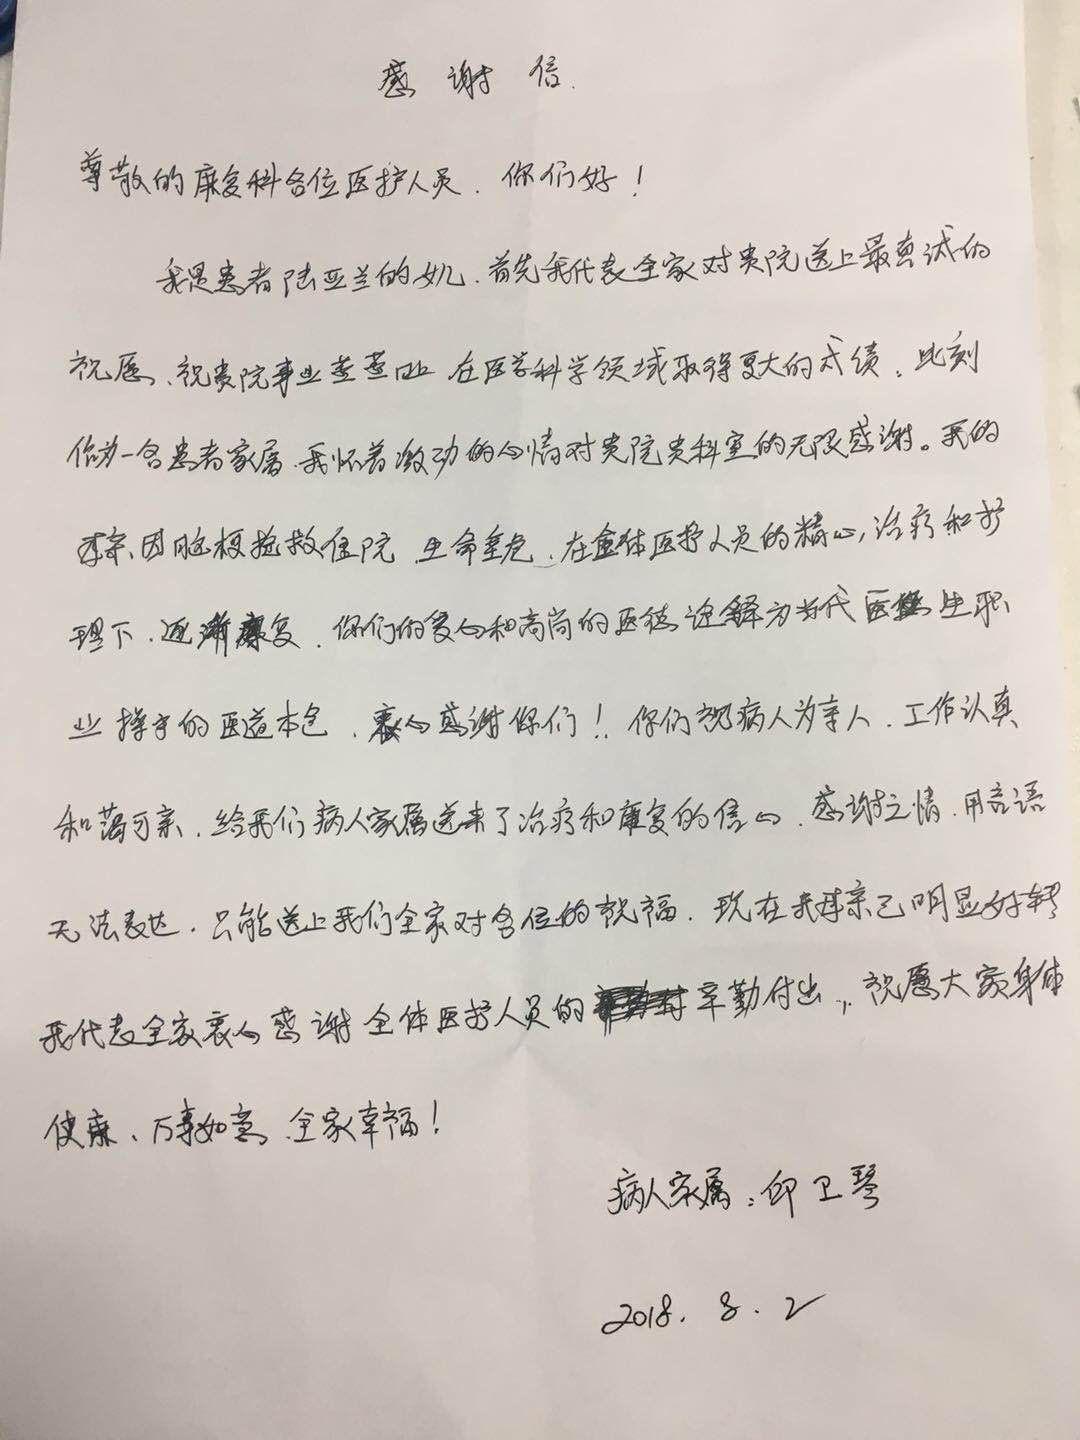 感谢信.
尊敬的康复科各位医护人员.你们好!
我是患者陆亚兰的女儿.首先我代表全家对贵院送上最真诚的
祝愿、祝贵院事业蒸蒸日上 在医学科学领域取得更大的成绩,此刻
作为一名患者家属.我怀着激动的心情对贵院贵科室的无限感谢。我的
母亲、因脑梗抢救住院.生命垂危、在全体医护人员的精心治疗和护
理下.逐渐康复.你们的爱心和高尚的医德诠释为当代医生职
业操守的医道本色、衷心感谢你们!你们视病人为亲人.工作认真
和蔼可亲.给我们病人家属送来了治疗和康复的信心.感谢之情.用言语
无法表达.只能送上我们全家对各位的祝福.现在我母亲已明显好转
我代表全家衷心感谢全体医护人员的辛勤付出,祝愿大家身体
健康、万事如意.全家幸福!
病人家属:邱卫琴
2018.8.2